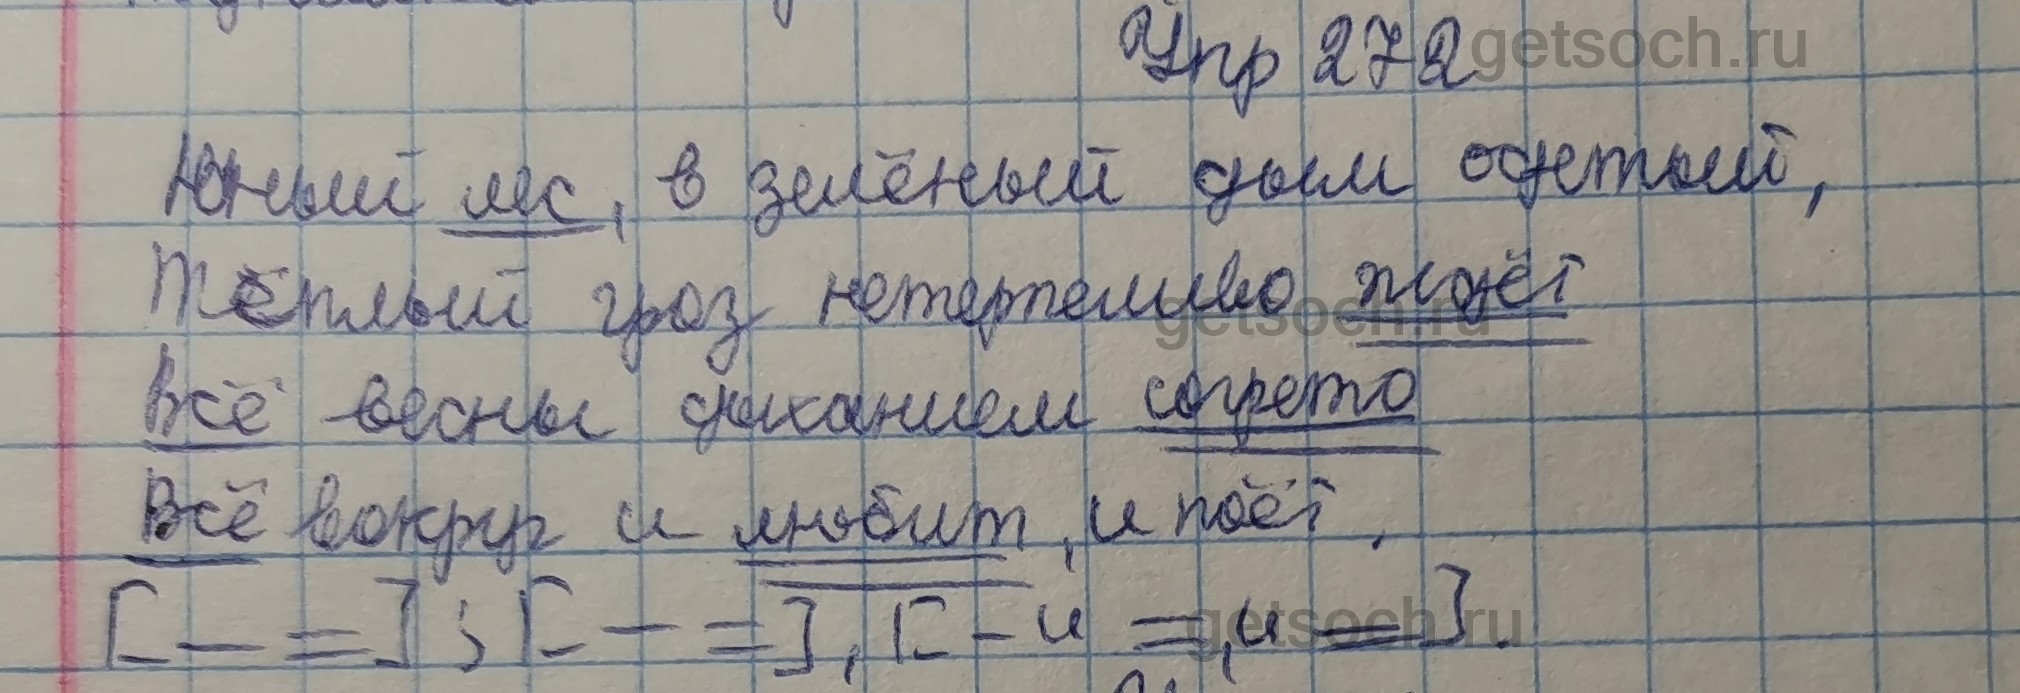 Упр 272
getsoch.ru
Юный лес, в зелёный дым одетый,
Тёплый гроз нетерпеливо ждёт
getsoch.ru
Всё весны дыханием согрето
Всё вокруг и любит, и поёт.
[— =]; [— =], [— и =, и =].
getsoch.ru